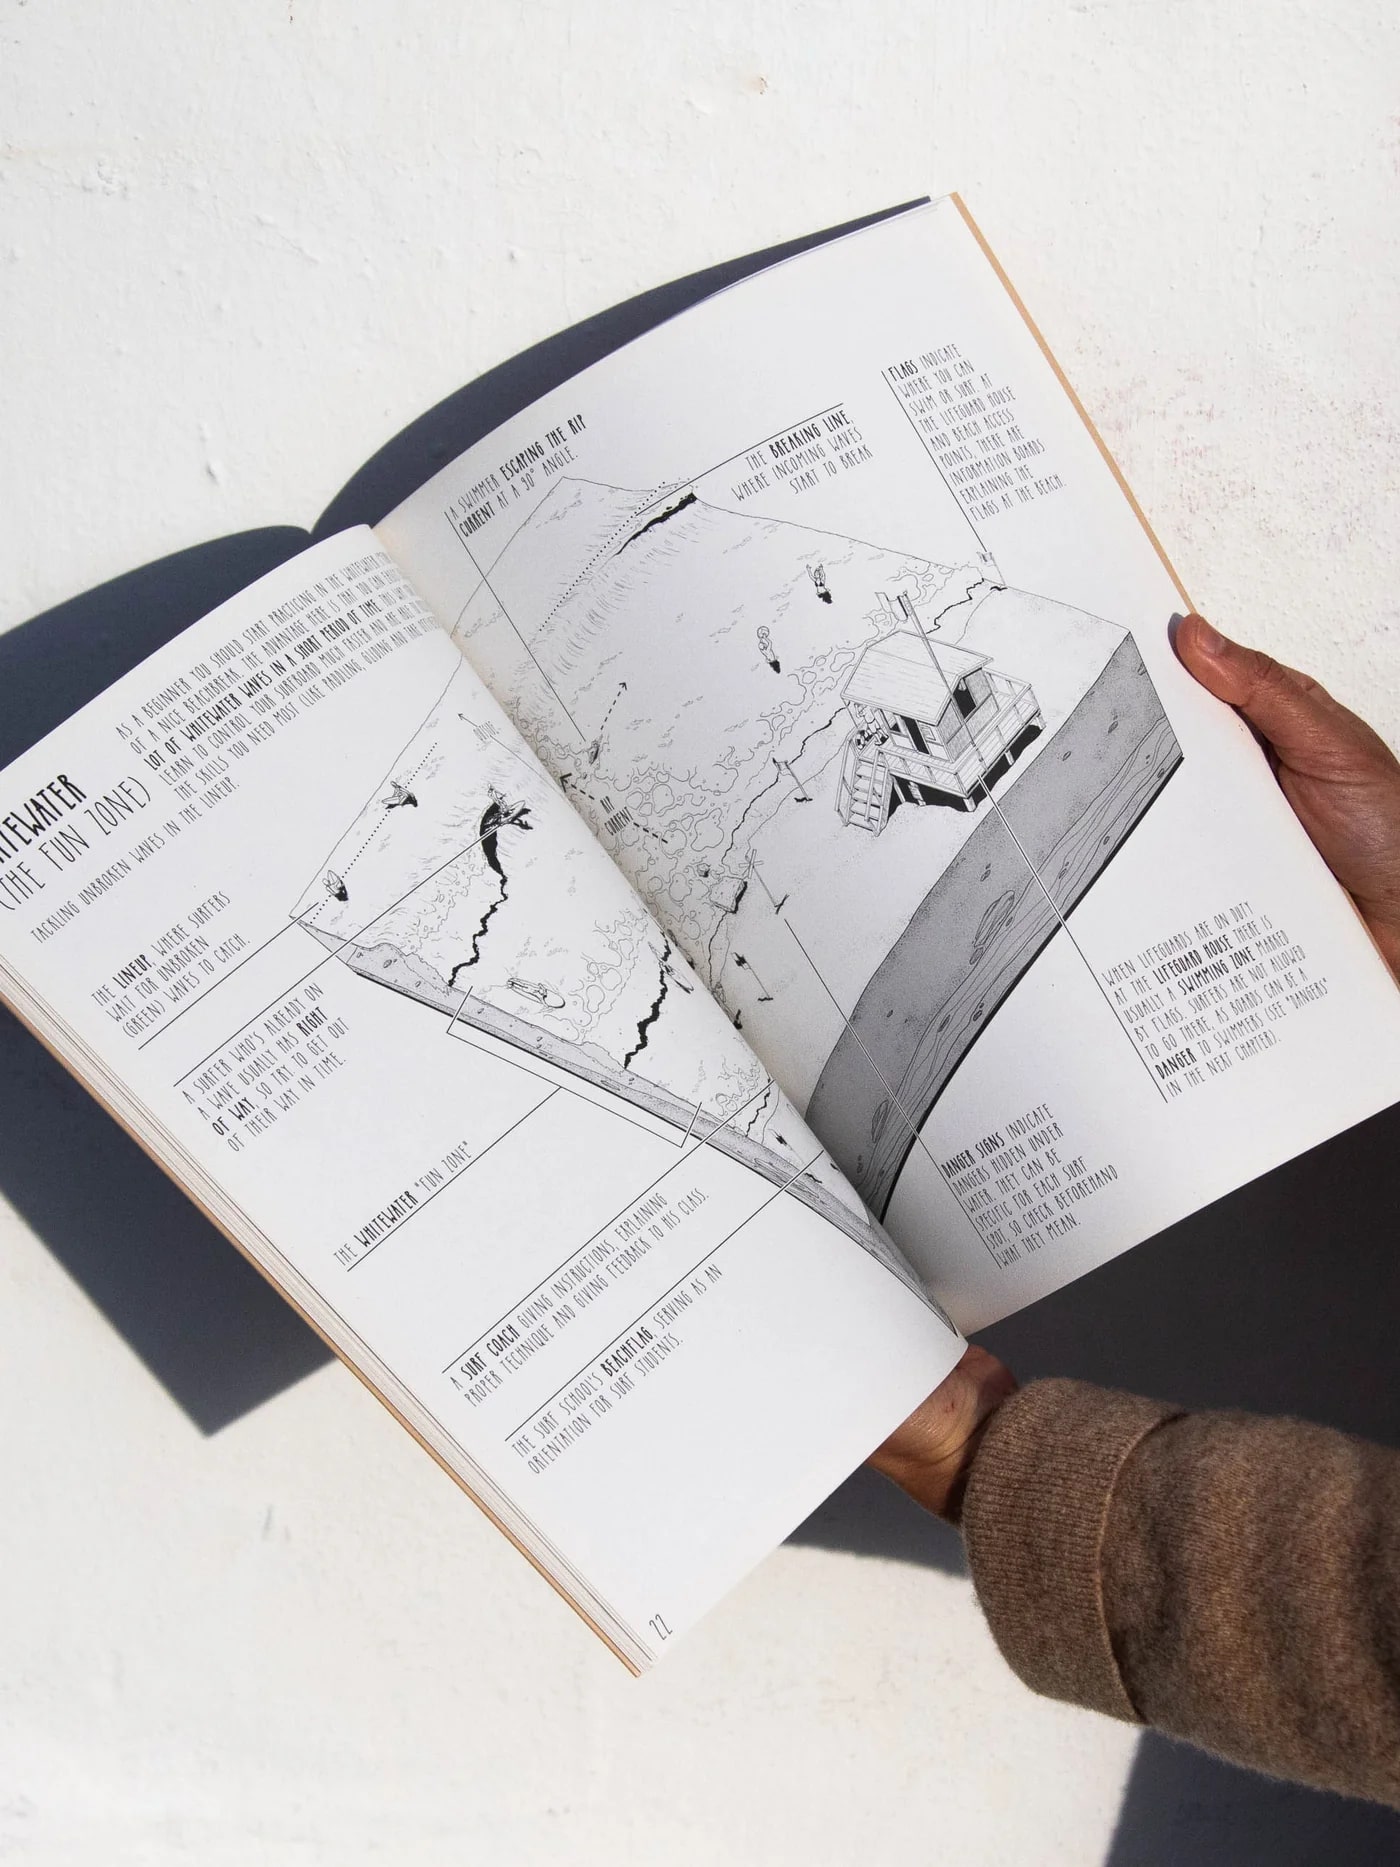 (THE FUN ZONE)
TACKLING UNBROKEN WAVES IN THE LINEUP.
AS A BEGINNER YOU SHOULD START PRACTICING IN THE WHITEWATER
OF A NICE BEACHBREAK. THE ADVANTAGE HERE IS THAT YOU CAN
LOT OF WHITEWATER WAVES IN A SHORT PERIOD OF TIME. THIS WAY
LEARN TO CONTROL YOUR SURFBOARD MUCH FASTER AND
THE SKILLS YOU NEED MOST (LIKE PADDLING, GLIDING AND
THE LINEUP, WHERE SURFERS
WAIT FOR UNBROKEN
(GREEN) WAVES TO CATCH.
A SURFER WHO'S ALREADY ON
A WAVE USUALLY HAS RIGHT
OF WAY, SO TRY TO GET OUT
OF THEIR WAY IN TIME.
THE WHITEWATER "FUN ZONE"
A SURF COACH GIVING INSTRUCTIONS, EXPLAINING
PROPER TECHNIQUE AND GIVING FEEDBACK TO HIS CLASS.
THE SURF SCHOOL'S BEACHFLAG, SERVING AS AN
ORIENTATION FOR SURF STUDENTS.
22
A SWIMMER ESCAPING THE RIP
CURRENT AT A 90° ANGLE.
RIP
CURRENT
THE BREAKING LINE,
WHERE INCOMING WAVES
START TO BREAK
FLAGS INDICATE
WHERE YOU CAN
SWIM OR SURF. AT
THE LIFEGUARD HOUSE
AND BEACH ACCESS
POINTS, THERE ARE
INFORMATION BOARDS
EXPLAINING THE
FLAGS AT THE BEACH.
WHEN LIFEGUARDS ARE ON DUTY
AT THE LIFEGUARD HOUSE THERE IS
USUALLY A SWIMMING ZONE MARKED
BY FLAGS. SURFERS ARE NOT ALLOWED
TO GO THERE, AS BOARDS CAN BE A
DANGER TO SWIMMERS (SEE "DANGERS"
IN THE NEXT CHAPTER).
DANGER SIGNS INDICATE
DANGERS HIDDEN UNDER
WATER. THEY CAN BE
SPECIFIC FOR EACH SURF
SPOT, SO CHECK BEFOREHAND
WHAT THEY MEAN.